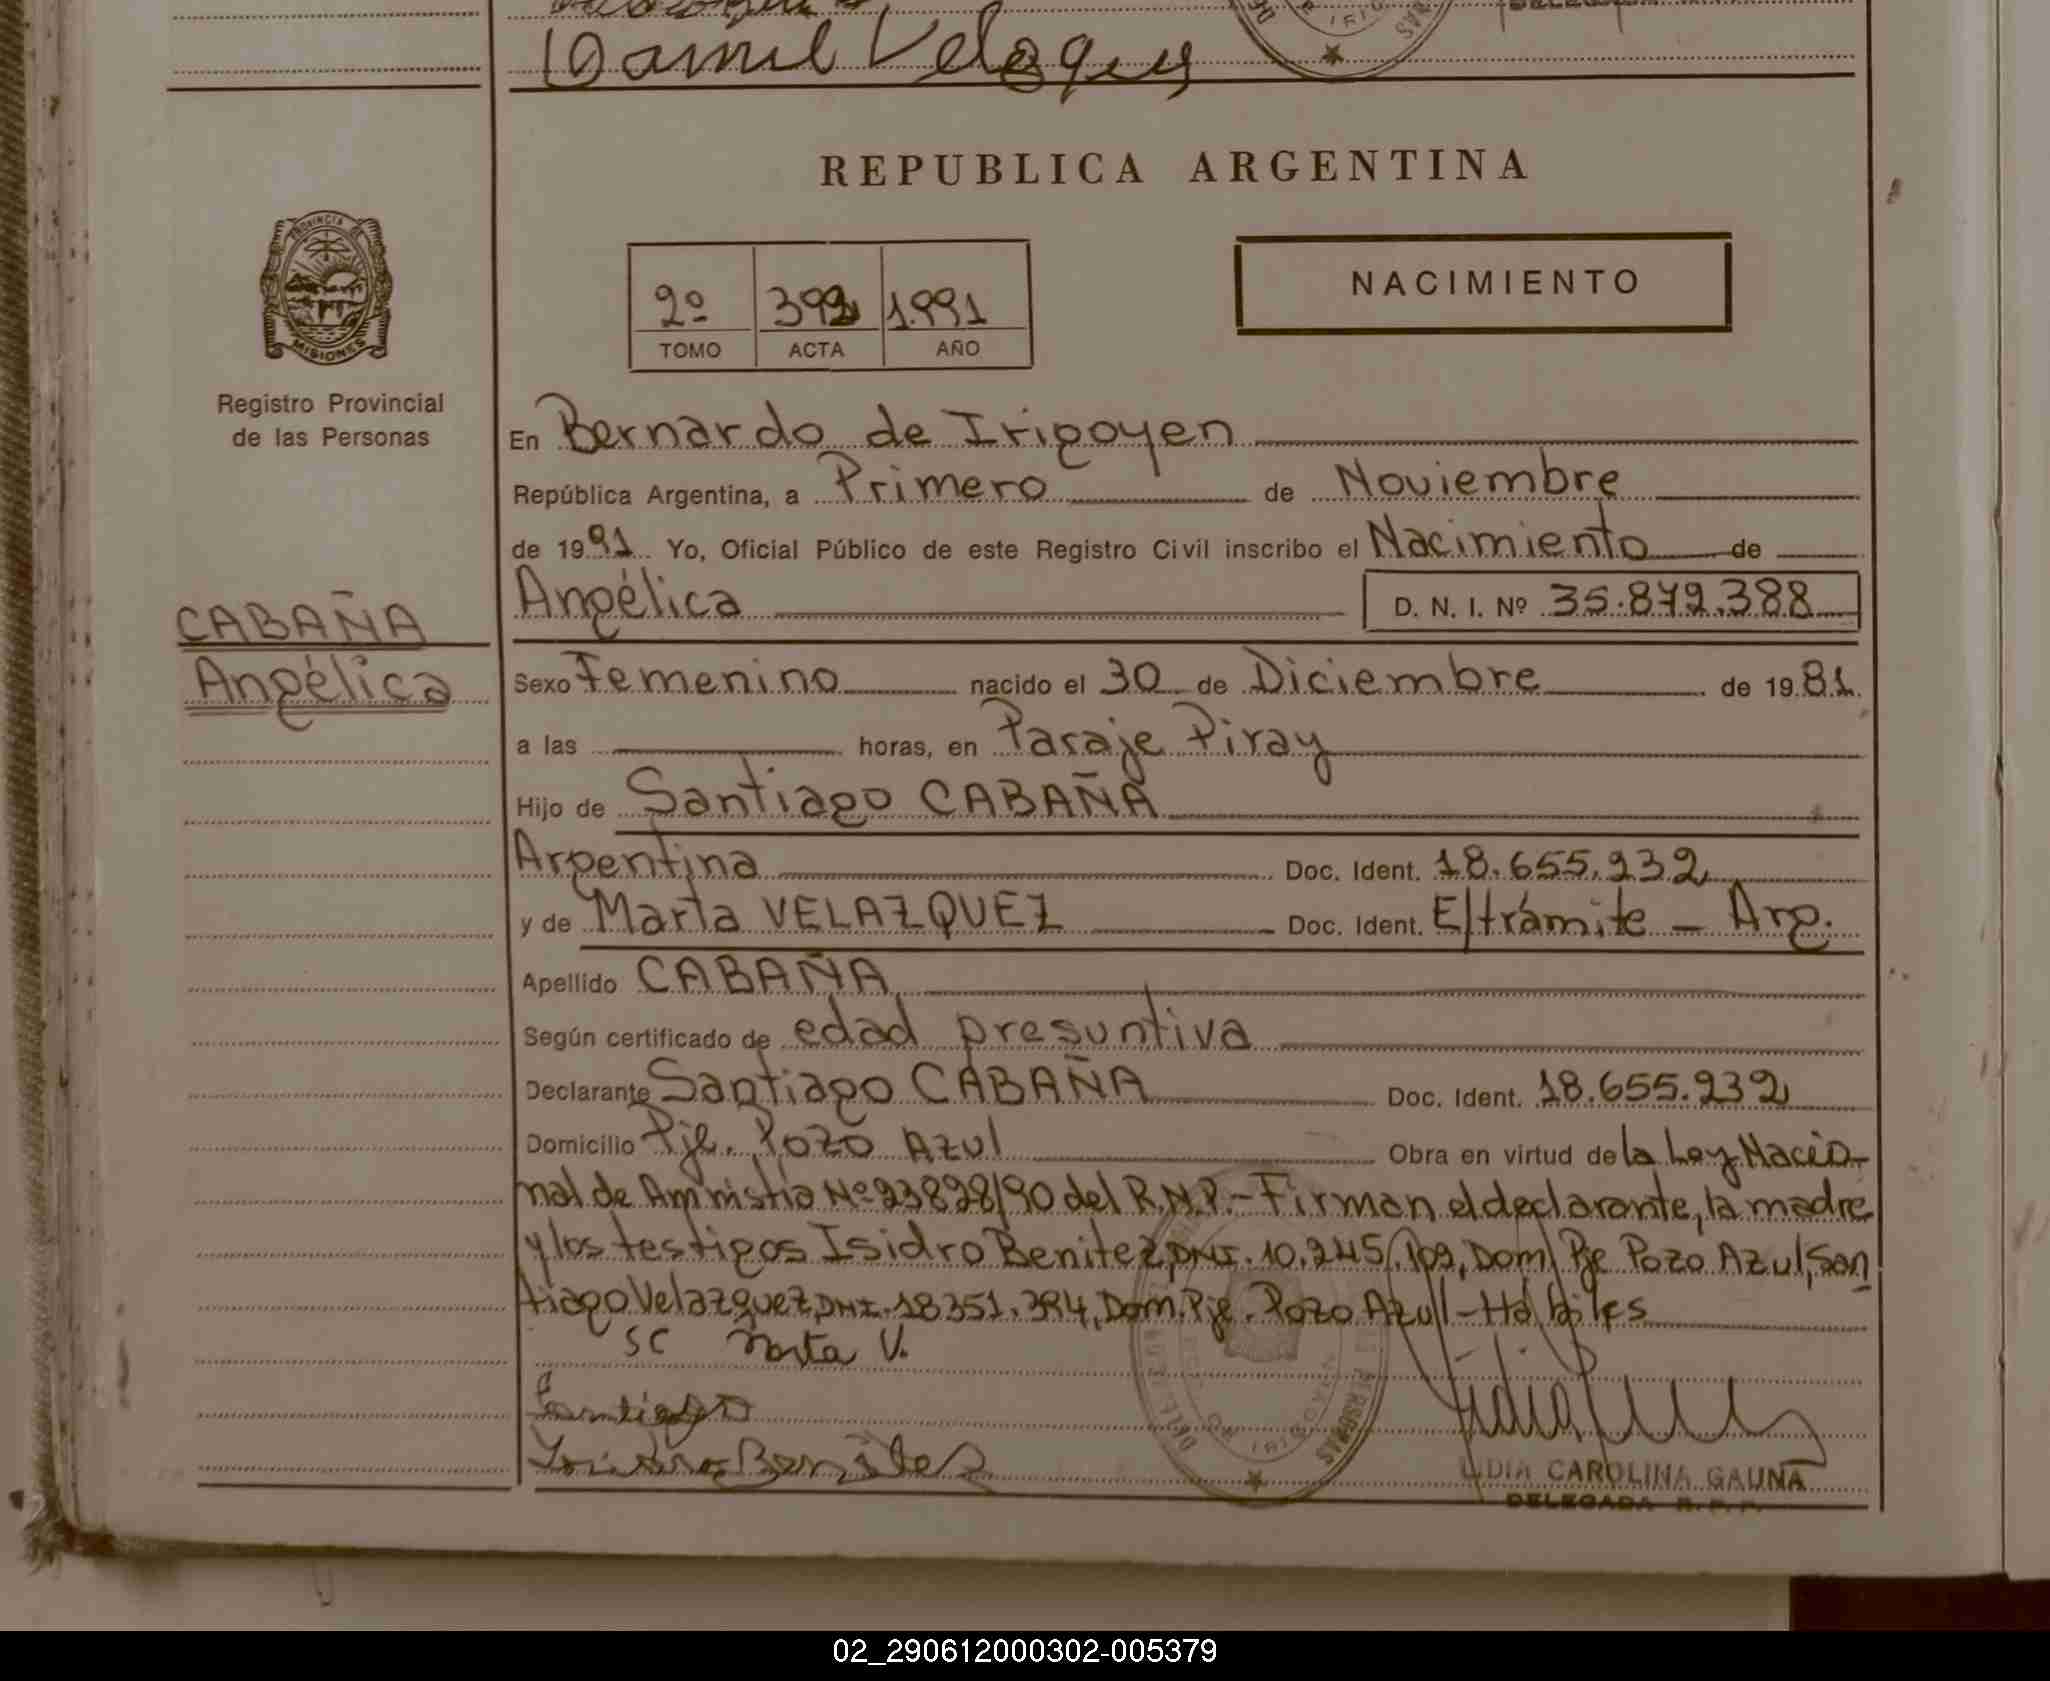 Daniel Velazquez
REPUBLICA ARGENTINA
PROVINCIA DE
MISIONES
2º 392 1.991
TOMO ACTA AÑO
NACIMIENTO
Registro Provincial
de las Personas
En Bernardo de Irigoyen
República Argentina, a Primero de Noviembre
de 1991 Yo, Oficial Público de este Registro Civil inscribo el Nacimiento de
Angélica D. N. I. Nº 35.872.388
CABAÑA
Angélica
Sexo Femenino nacido el 30 de Diciembre de 1981
a las horas, en Paraje Piray
Hijo de Santiago CABAÑA
Argentina Doc. Ident. 18.655.232
y de Marta VELAZQUEZ Doc. Ident. E/trámite – Arg.
Apellido CABAÑA
Según certificado de edad presuntiva
Declarante Santiago CABAÑA Doc. Ident. 18.655.232
Domicilio Pje. Pozo Azul Obra en virtud de la Ley Nacio-
nal de Amnistia Nº 23828/90 del R.N.P.- Firman el declarante, la madre
y los testigos Isidro Benitez, DNI. 10.245.109, Dom. Pje Pozo Azul, San
tiago Velazquez, DNI. 18351.394, Dom. Pje. Pozo Azul - Hábiles
SC Marta V.
Santiago
Isidro Benitez
LIDIA CAROLINA GAUNA
DELEGADA R. P. P.
02_290612000302-005379